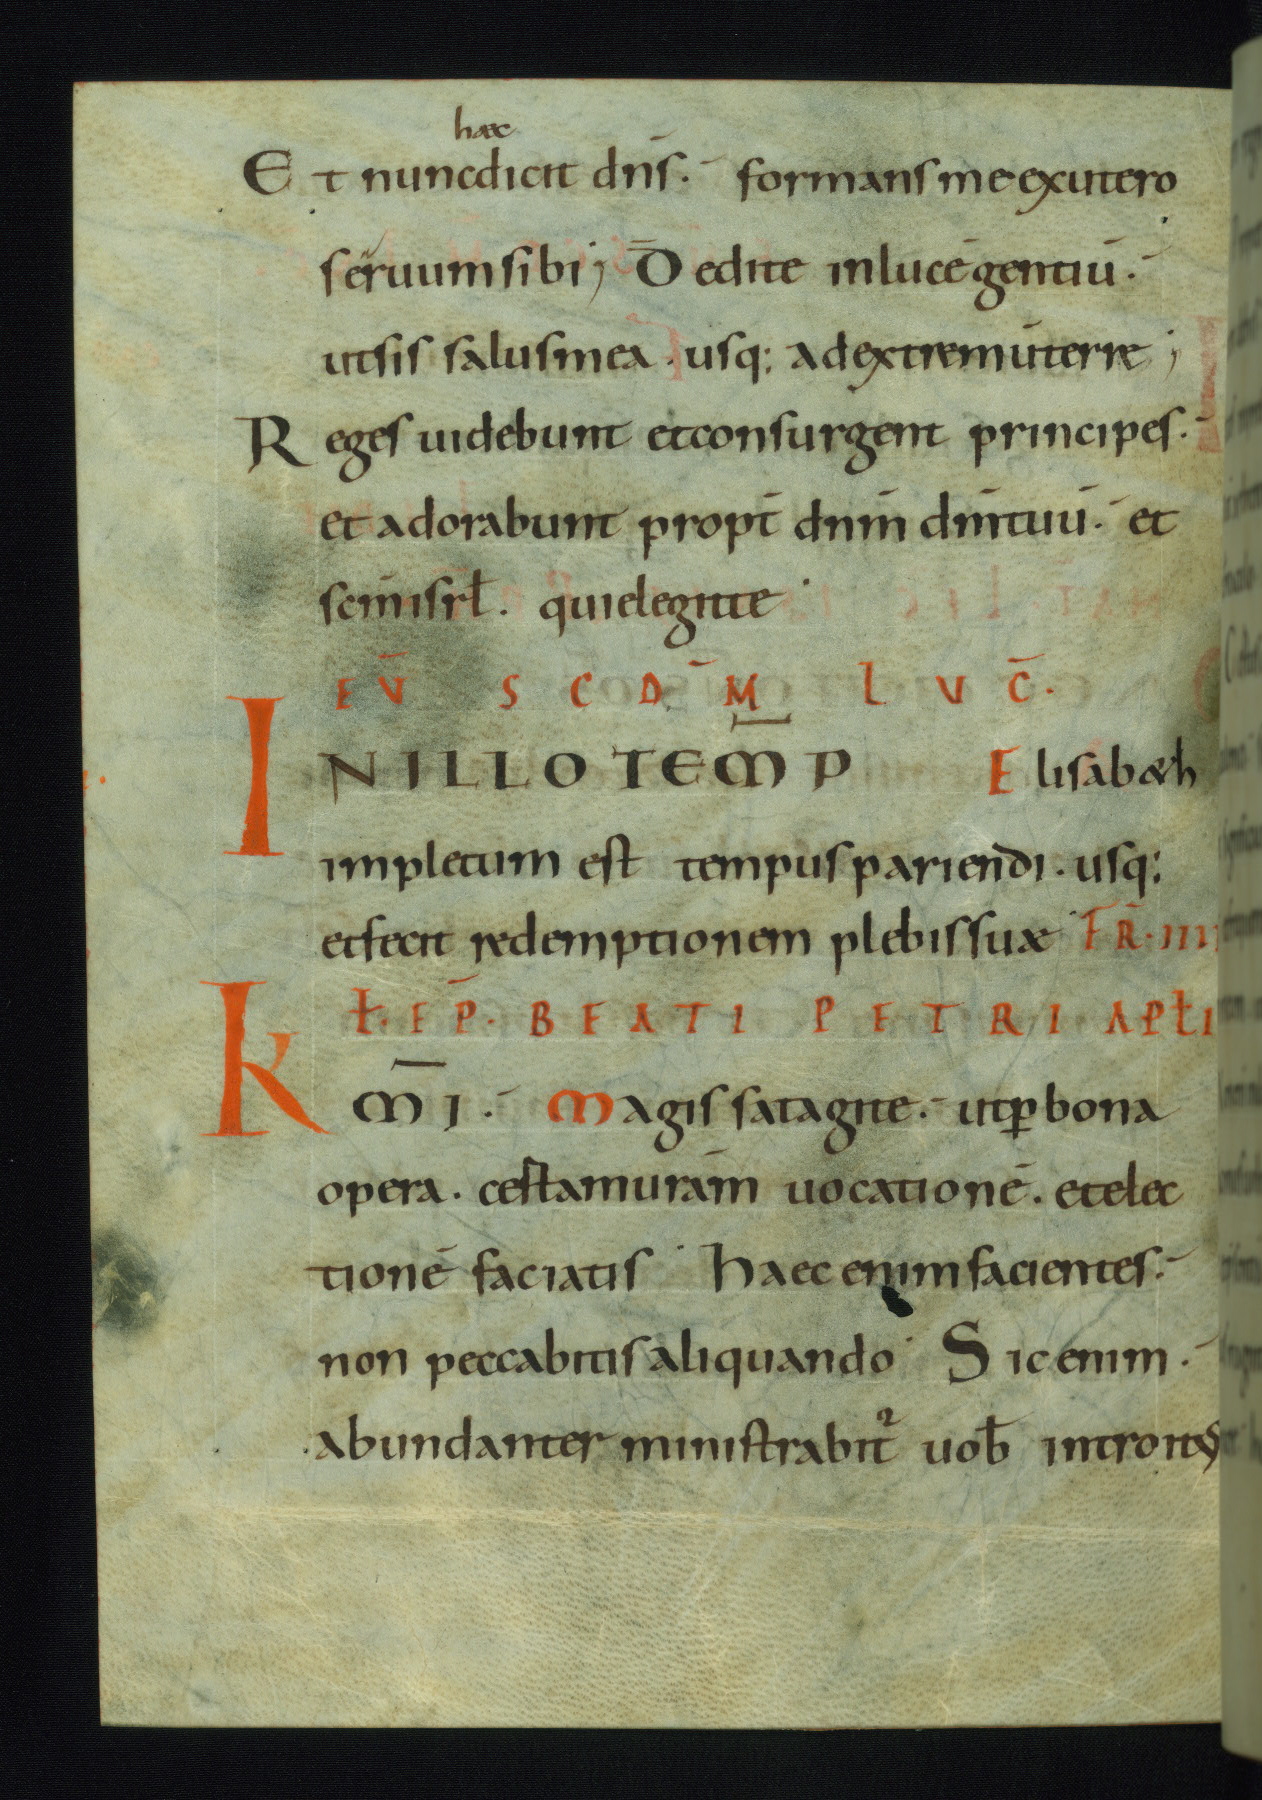 haec
Et nunc dicit dn̄s. formans me exutero
seruum sibi; Dedi te in lucē gentiū.
ut sis salus mea. usq; ad extremū terre;
Reges uidebunt et consurgent principes.
et adorabunt propt̄ dnm̄ dm̄ tuū. et
scm̄ isrł. qui elegit te
EṼ SCDM̄ LUC̄.
IN ILLO TEM̄P Elisabæh
impletum est tempus pariendi. usq;
et fecit redemptionem plebis suæ FR̄. IIII
ŁEP̄. BEATI PETRI APŁI
KM̄I. Magis satagite. ut p̱ bona
opera. certam urām uocationē. et elec
tionē faciatis Haec enim facientes.
non peccabitis aliquando Sic enim.
abundanter ministrabit̉ uob̄ introitus